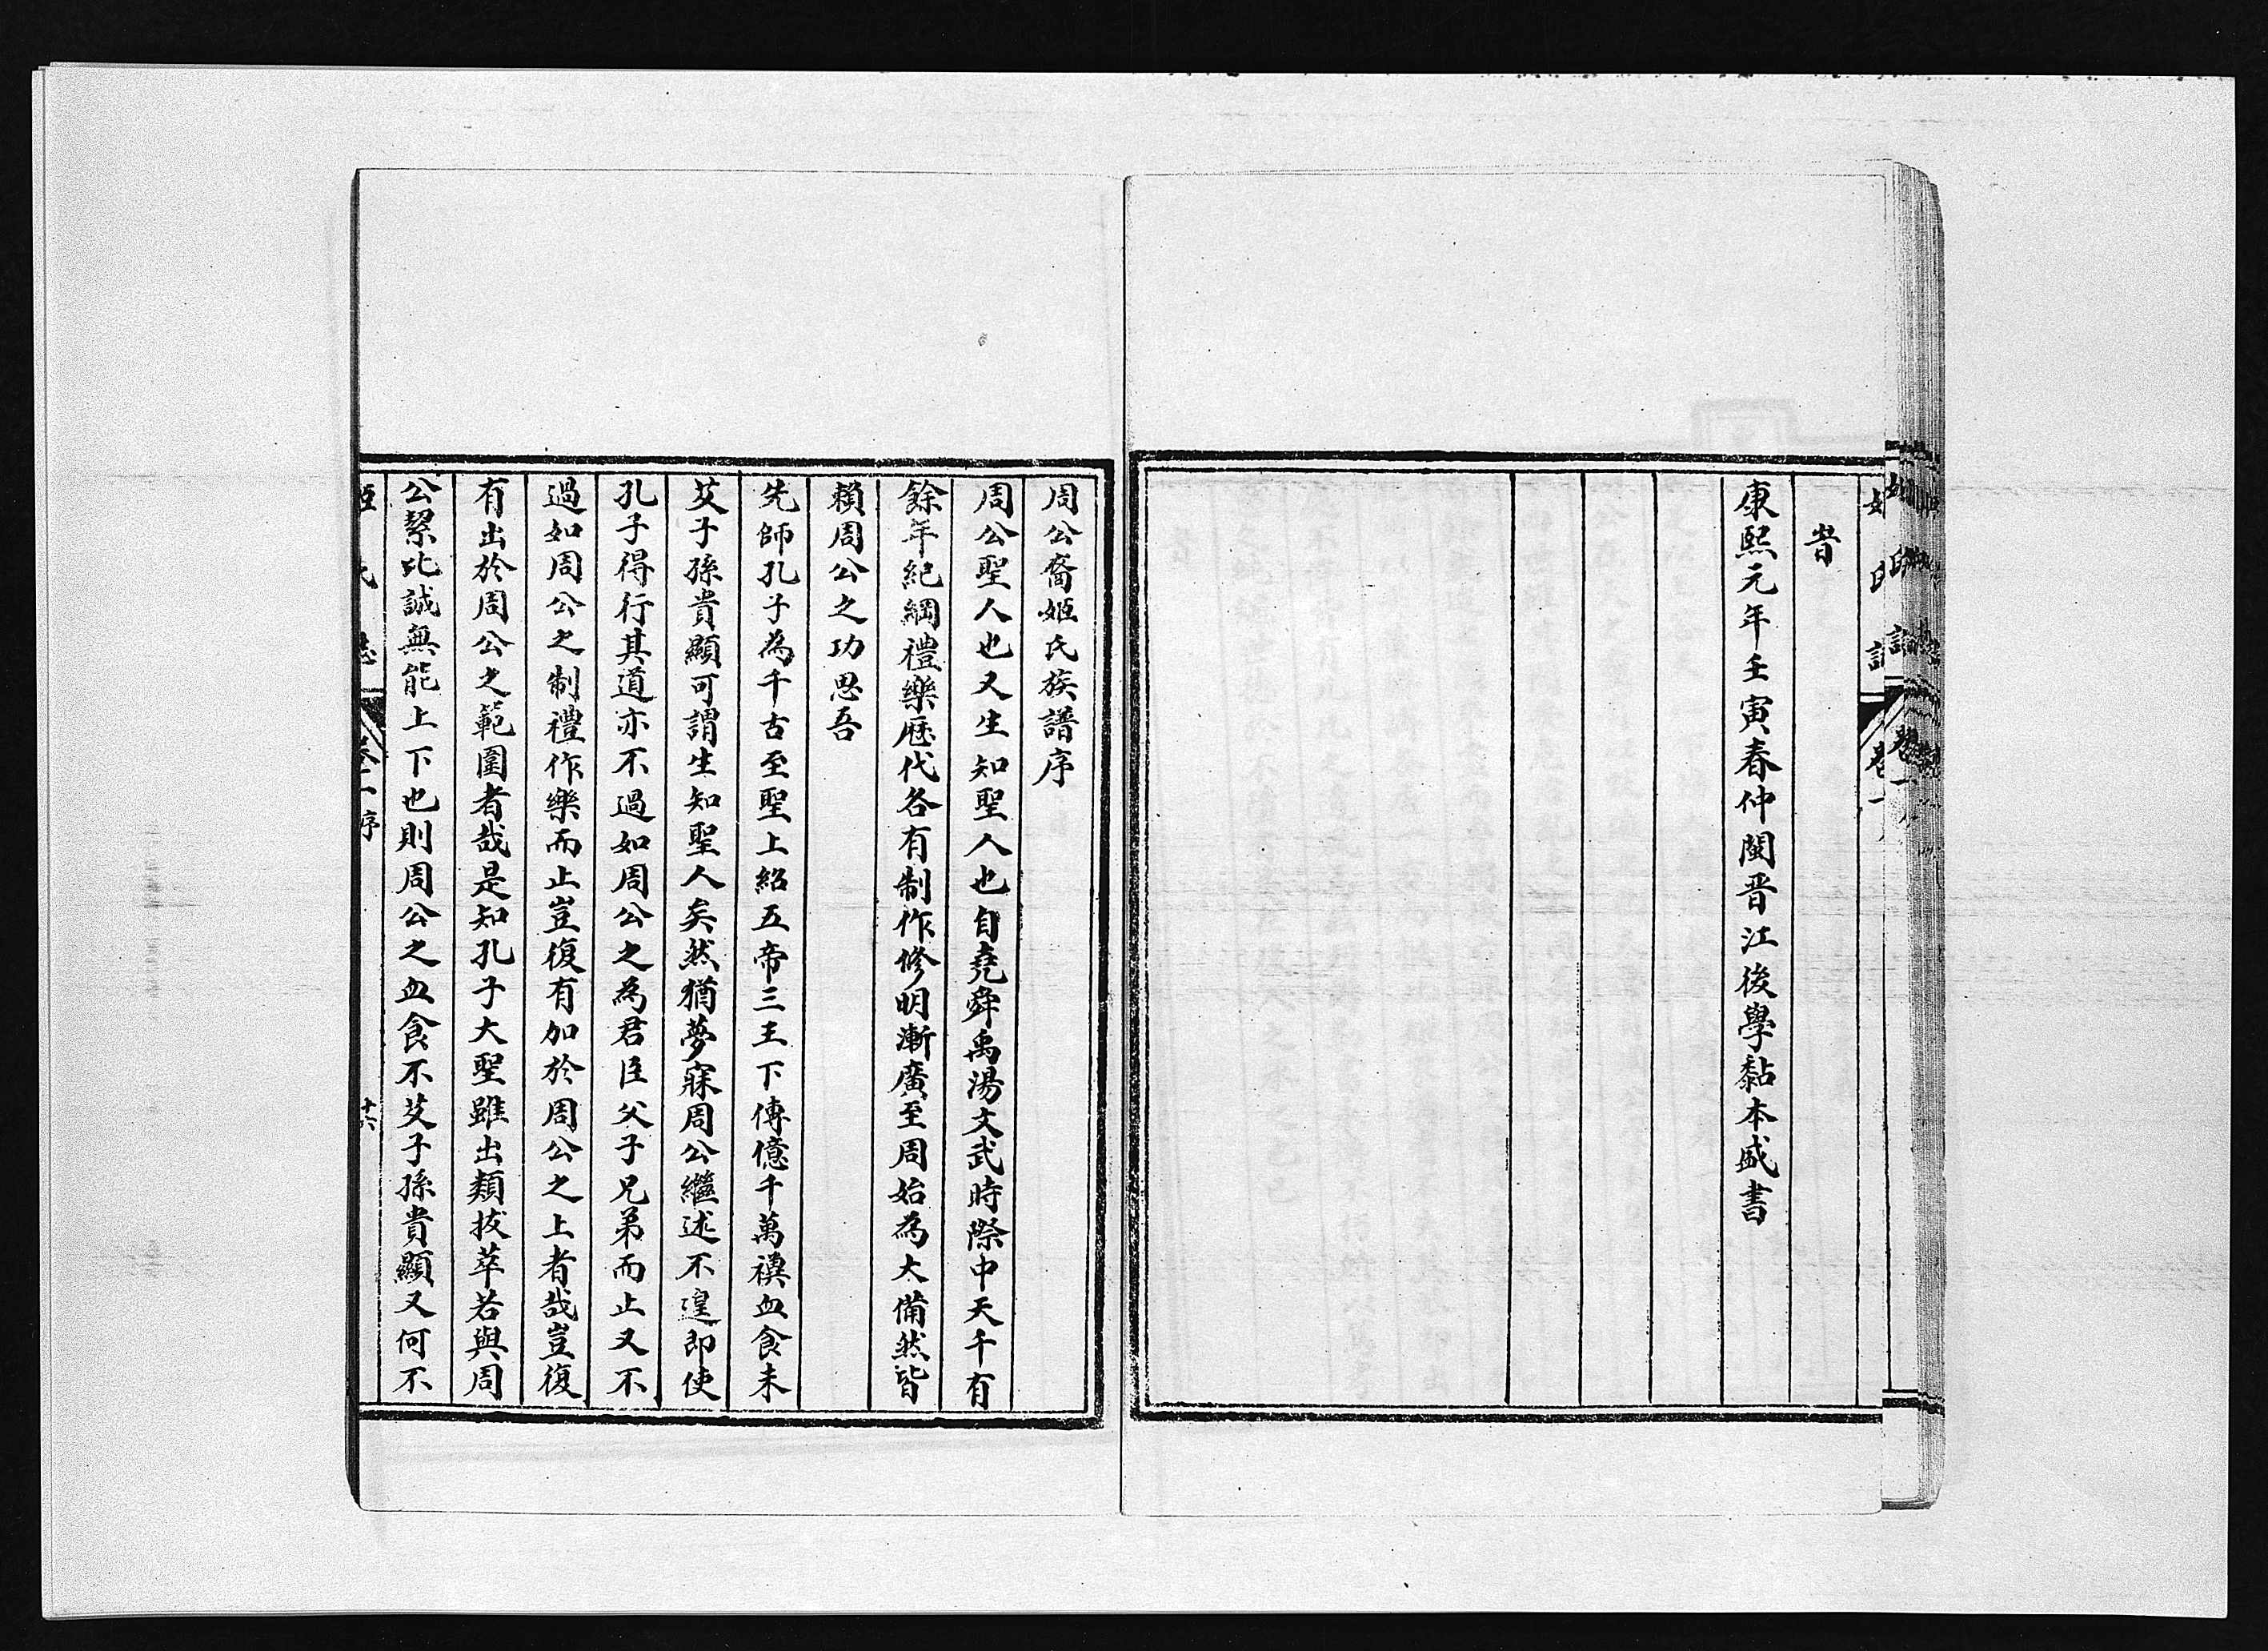 旹
康熙元年壬寅春仲閩晋江後學黏本盛書
周公裔姬氏族譜序
周公聖人也又生知聖人也自堯舜禹湯文武時際中天千有
餘年紀綱禮樂歷代各有制作修明漸廣至周始為大備然皆
賴周公之功思吾
先師孔子為千古至聖上紹五帝三王下傳億千萬禩血食未
艾子孫貴顯可謂生知聖人矣然猶夢寐周公繼述不遑即使
孔子得行其道亦不過如周公之為君臣父子兄弟而止又不
過如周公之制禮作樂而止豈復有加於周公之上者哉豈復
有出於周公之範圍者哉是知孔子大聖雖出類拔萃若與周
公絜比誠無能上下也則周公之血食不艾子孫貴顯又何不
姬氏志 卷一序 十六